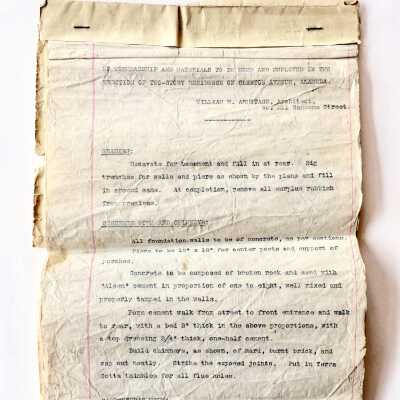 OF WORKMANSHIP AND MATERIALS TO BE USED AND EMPLOYED IN THE
ERECTION OF TWO-STORY RESIDENCE ON CLINTON AVENUE, ALAMEDA.
WILLIAM H. ARMITAGE, Architect,
Street.
GRADING:
Excavate for basement and fill in at rear. Dig
trenches for walls and piers as shown by the plans and fill
in around same. At completion, remove all surplus rubbish
from premises.
CONCRETE WORK AND CHIMNEYS:
All foundation walls to be of concrete, as per sections.
Piers to be 18" x 18" for center posts and support of
porches.
Concrete to be composed of broken rock and sand with
"Alsen" cement in proportion of one to eight, well mixed and
properly tamped in the walls.
Form cement walk from street to front entrance and walk
to rear, with a bed 3" thick in the above proportions, with
a top dressing 3/4" thick, one-half cement.
Build chimneys, as shown, of hard, burnt brick, and
cap out neatly. Strike the exposed joints. Put in Terra
Cotta thimbles for all flue holes.